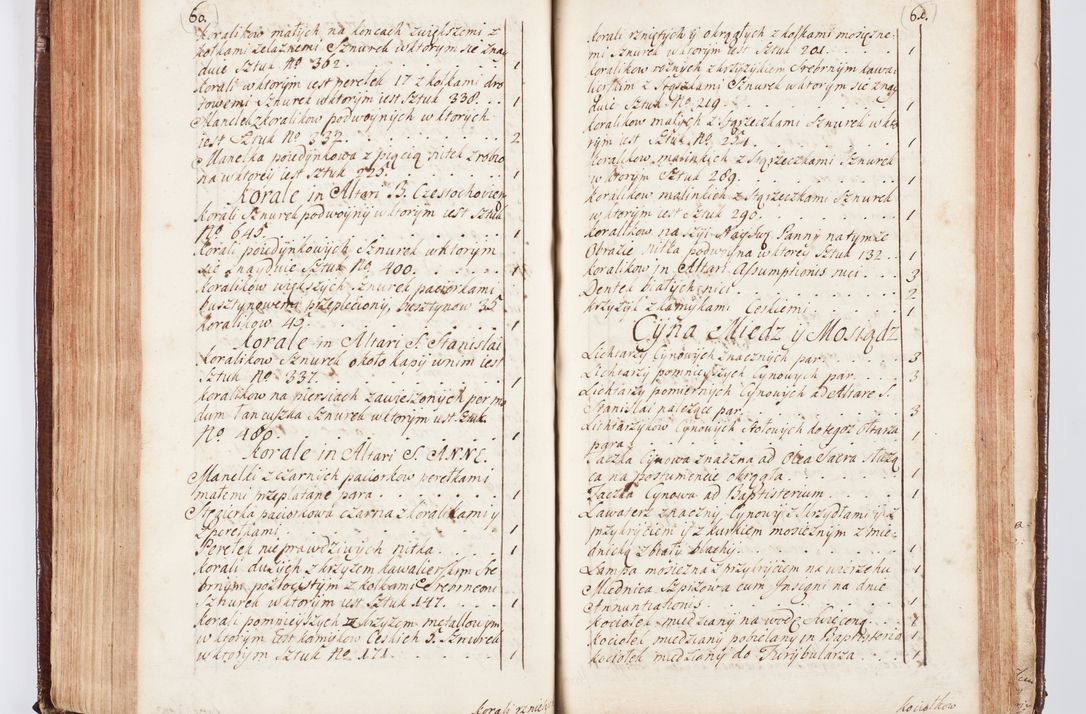 60.
Koralikow małych na koncach zwiększemi z
kolkami zelaznemi Sznurek wktorym się znay
duie Sztuk Nº 362. 1
Korali wktorym iest perełek 17 z kolkami dro
towemi Sznurek wktorym iest Sztuk 338. 1
Manelek z koralikow podwoynych w ktorych
iest Sztuk Nº 337. 2
Manelka poiedynkowa z pięcią nitek zrobio
na wktorey iest Sztuk 225. 1
Korale in Altari B. Czestochovien
Korali Sznurek podwoyny wktorym iest Sztuk
Nº 645. 1
Korali poiedynkowych Sznurek wktorym
się znayduie Sztuk Nº 400. 1
Koralikow większych Sznurek paciorkami
bursztynowemi przepleciony, bursztynow 35
Koralikow 49. 1
Korale in Altari S. Stanislai
Koralikow Sznurek około kapy wnim iest
Sztuk Nº 337. 1
Koralikow na piersiach zawieszonych per mo
dum łancuszka Sznurek wktorym iest Sztuk
Nº 480. 1
Korale in Altari S. ANNE.
Manelki z czarnych paciorkow perełkami
małemi przeplatane para 1
paciorkowa czarna z koralikami y
z perełkami 1
Perełek nieprawdziwych nitka 1
Korali duzych z krzyzem kawalierskim Sre
brnym pozłocistym z kolkami Srebrnemi
Sznurek wktorym iest Sztuk 147. 1
Korali pomnieyszych z krzyzem metallowym
w ktorym Est kamykow Ceskich 5. Sznurek
wktorym Sztuk Nº 171 1
Korali rzniętych
Korali rzniętych y okrągłych z kolkami mosięzne
mi Sznurek wktorym iest Sztuk 201. 1
Koralikow roznych z krzyzykiem Srebrnym kawa
lierskim z Stązkami Sznurek wktorym się znay
duie Sztuk Nº 219. 1
Koralikow małych z Stązeczkami Sznurek wkto
rym iest Sztuk Nº 1
Koralikow malinkich z Stązeczkami Sznurek
w ktorym Sztuk 289. 1
Koralikow malinkich z Stązeczkami Sznurek
wktorym iest Sztuk 290. 1
Koralikow na szyi Nayświ Panny natymze
Obrazie nitka podwoyna wktorey Sztuk 132. 1
Koralikow in Altari Assumptionis nici 3
Dentek białych nici 2
Krzyzyk z kamykami Ceskiemi 1
Cyna Miedz y Mosiądz
Lichtarzy Cynowych znacznych par 3
Lichtarzy pomnieyszych Cynowych par 3
Lichtarzy pomiernych Cynowych ad Altare S.
Stanislai nalezące par 3
Lichtarzykow Cynowych Stołowych do tegoz Ołtarza
para 1
Taczka Cynowa znaczna ad Olea Sacra słuzą
ca na postumencie okrągła 1
Taczka Cynowa ad Baptisterium 1
Lawaterz znaczny Cynowy z Skrzydłami y z
przykryciem y z kurkiem mosięznym z mie
dnicą z białey blachy 1
Lampa mosięzna z przykryciem na wierzchu 1
Miednica Spizowa cum Insigni na dnie
Annuntiationis 1
Kociołek miedziany na wodę Swięconą
Kociołek miedziany pobielany in Baptisterio 1
Kociołek miedziany do Turybularza 1
Kociołkow